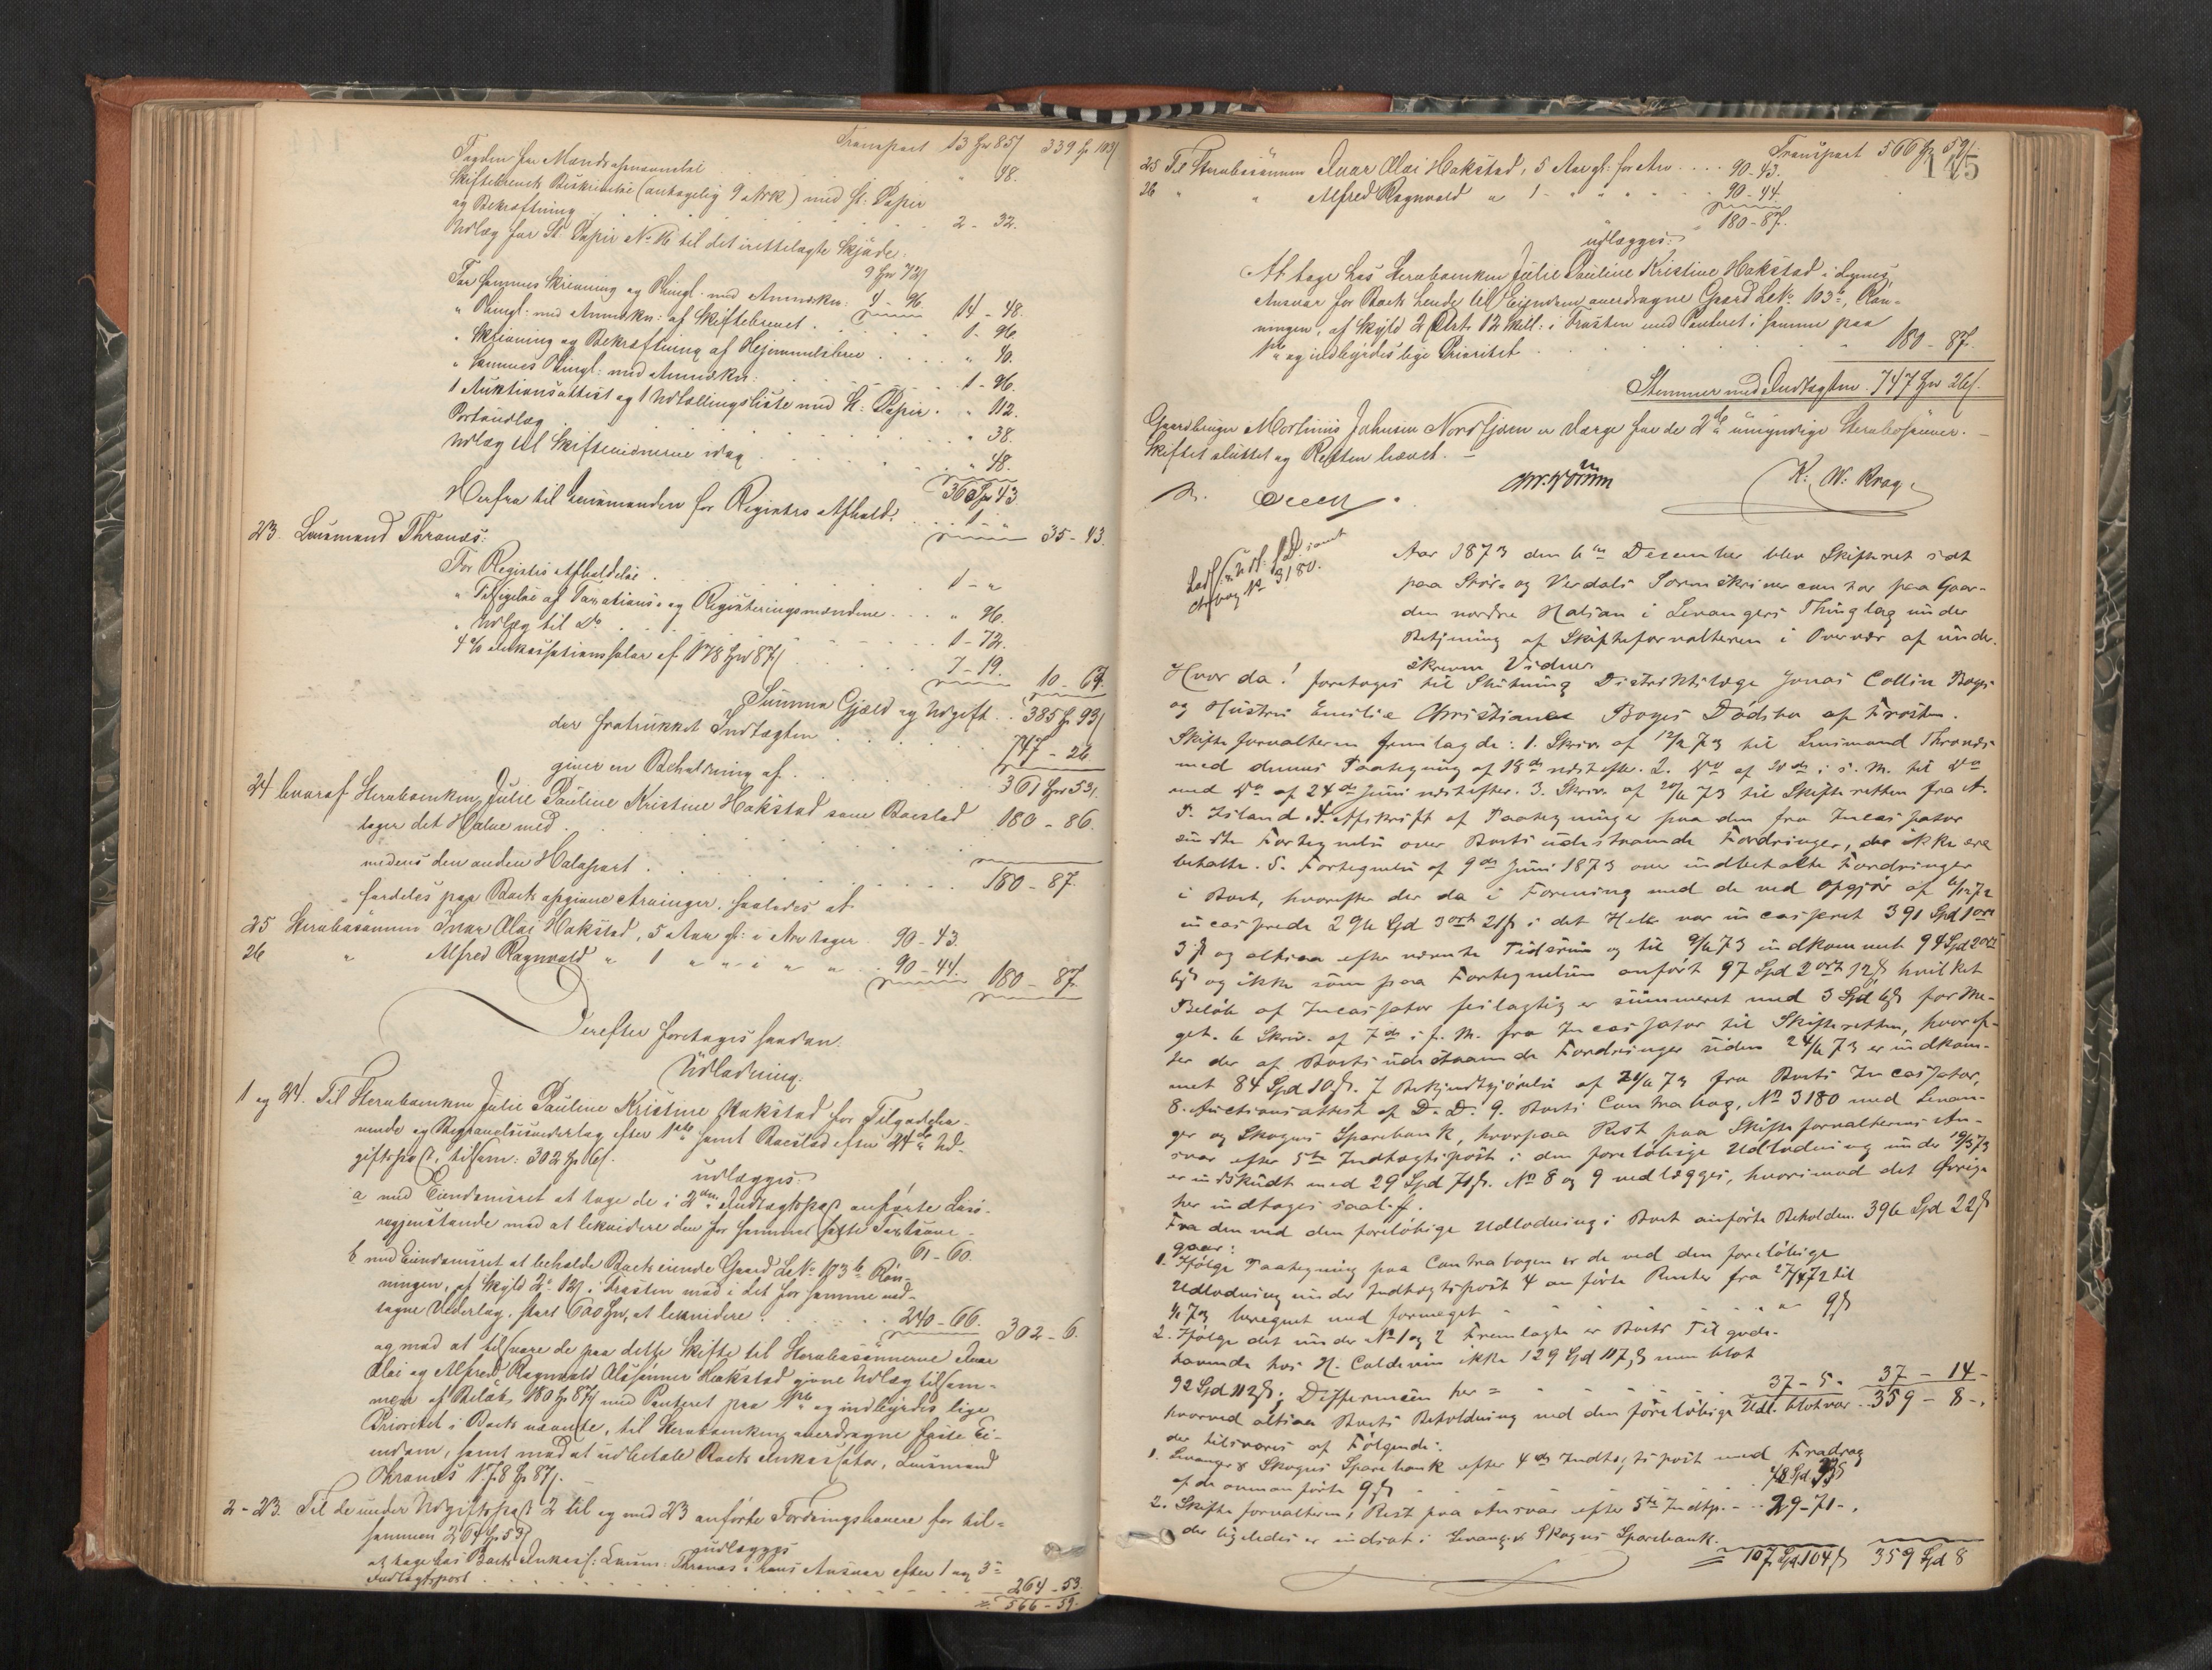 Transport 13 Spd 85 ß 339 Sp 103 ß
Tægten for Mænds opnævnelse . . . " 48.
Skiftebrevets Beskrivelse (antagelig 9 Ark) med St: Papir
og Bekræftning . . . 2 - 32.
Udlæg for St. Papir No 16 til det irettelagte Skjøde
9 Spd 72 ß
For sammes Skrivning og Thingl. med Anmærkn: 4 - 96 14 - 48.
" Thingl: med Anmærkn: af Skiftebrevet . . . 1 - 96.
" Skrivning og Bekræftning af Hjemmelsbrev . . . " 40.
" sammes Thingl: med Anmærkn: . . . 1 - 96.
1 Auktionsattest og 1 Udlodlingsliste med St: Papir . " 112.
Portoudlæg . . . " 38.
Udlæg til Skiftevidnerne idag . . . " 48.
36 Spd 43
Herfra til Lensmanden for Registrs Afhold: . . 1 - " 35 - 43.
23. Lensmand Thranæs:
For Registrs Afholdelse . . . 1 - "
" Tilsigelse af Taxations- og Registreringsmændene . . . " 96.
" Udlæg til Do . . . 1 - 72.
4 % Inkassationssalær af 178 Spd 87 ß . . . 7 - 19. 10 - 67.
Summa Gjæld og Udgift . . 385 Sp 93 ß
der fratrukket Indtægten . . . 747 - 26
giver en Beholdning af . . . 361 Spd 53 ß.
24 hvoraf Sterboenken Julie Pauline Kristine Hakstad som Boeslod
tager det Halve med . . . 180 - 86.
medens den anden Halvpart . . . 180 - 87.
fordeles paa Boets opgivne Arvinger, saaledes at
25 Sterbosønnen Ivar Olai Hakstad, 5 Aar gl: i Arv tager 90 - 43.
26 " Alfred Ragnvald " 1 " " " i " " 90 - 44. 180 - 87.
Derefter foretoges saadan
Udlodning.
1 og 24. Til Sterboenken Julie Pauline Kristine Hakstad for Tilgodeha-
vende og Begravelsesvederlag efter 1ste samt Boeslod efter 24de Ud-
giftspost, tilsam: 302 Sp 6 ß.
udlægges:
a med Eiendomsret at tage de i 2den Indtægtspost anførte Løsø-
regjenstande mod at lekvidere den for samme satte Taxtsum . 61 - 60.
b med Eiendomsret at beholde Boets eiende Gaard LNo 103 b Røn-
ningen, af Skyld 2 o 12 ß i Frosten mod i det for samme ved-
tagne Vederlag, stort 600 Spd, at lekvidere . . . 240 - 66. 302 - 6.
og mod at tilsvare de paa dette Skifte til Sterbosønnerne Ivar
Olai og Alfred Ragnvald Olssønner Hakstad givne Udlæg tilsam-
men af Beløb 180 Sp 87 ß med Panteret paa 1ste og indbyrdes lige
Prioritet i Boets nævnte, til Sterboenken overdragne faste Ei-
endom, samt mod at udbetale Boets Inkassator, Lensmand
Thranæs 178 Sp 87 ß.
2 - 23. Til de under Udgiftspost 2 til og med 23 anførte Fordringshavere for til-
sammen 264 Sp 53 ß
udlægges
at tage hos Boets Inkass: Lensm: Thranæs i hans Ansvar efter 1 og 3de
Indtægtspost . . . 264 - 53.
= 566 - 59.
Transport 566 Sp 59 ß
145
25 Til Sterbosønnen Ivar Olai Hakstad, 5 Aar gl: for Arv . . . . 90 - 43.
26 " " Alfred Ragnvald " 1 - " " " . 90 - 44
180 - 87.
udlægges:
At tage hos Sterboenken Julie Pauline Kristine Hakstad i hendes
Ansvar for Boets hende til Eiendom overdragne Gaard LNo 103 b, Røn-
ningen, af Skyld 2 Ort. 12 Skill: i Frosten med Panteret i samme paa
1ste og indbyrdes lige Prioritet . . . 180 - 87.
Stemmer med Indtægten . 747 Spd 26 ß.
Gaardbruger Mortinus Johnsen Nordfjæren er Værge for de 2de umyndige Sterbosønner. -
Skiftet sluttet og Retten hævet. -
K: W: Krag.
Aar 1873 den 6te December blev Skifteret sat
paa Stør- og Verdals Sorenskrivercontor paa Gaar-
den nordre Halsan i Levangers Thinglag under
Betjening af Skifteforvalteren i Overvær af under-
skrevne Vidner
No 3180.
Hvor da! foretoges til Slutning Districtslæge Jonas Collin Boyes
og Hustru Emilie Christiane Boyes Dødsbo af Frosten.
Skifteforvalteren fremlagde: 1. Skriv. af 12/2 73 til Lensmand Thranæs
med dennes Paategning af 18de næstefter. 2. Do af 20de i s. M. til Do
med Do af 24de Juni næstefter. 3. Skriv. af 20/6 73 til Skifteretten fra A.
P. Island. 4. Afskrift af Paategninger paa den fra Incassator
sendte Fortegnelse over Boets udestaaende Fordringer, der ikke ere
betalte. 5. Fortegnelse af 9de Juni 1873 over indbetalte Fordringer
i Boet, hvorefter der da i Forening med de ved Opgjør af 6/12 72
incasserede 296 Spd 3 ort 21 ß i det Hele var incasseret 391 Spd 1 ort
3 ß og altsaa efter nævnte Tidsrum og til 9/6 73 indkommet 94 Spd 2 ort
6 ß og ikke som paa Fortegnelsen anført 97 Spd 2 ort 12 ß hvilket
Beløb af Incassator feilagtig er summeret med 3 Spd 6 ß for Me-
get. 6 Skriv. af 7de i f. M. fra Incassator til Skifteretten, hvoref-
ter der af Boets udestaaende Fordringer siden 24/6 73 er indkom-
met 84 Spd 10 ß. 7 Bekjendtgjørelse af 24/6 73 fra Boets Incassator,
8. Auctionsattest af D. D. 9. Boets Contrabog, No 3180 med Levan-
ger og Skogns Sparebank, hvorpaa Rest paa Skifteforvalterens An-
svar efter 5te Indtægtspost i den foreløbige Udlodning under 19/3 73
er indskudt med 29 Spd 71 ß. No 8 og 9 vedlægges, hvorimod det Øvrige
her indtages saal. ff.
Fra den ved den foreløbige Udlodning i Boet anførte Beholdn. 396 Spd 22 ß
gaar:
1. Ifølge Paategning paa Contrabogen er de ved den foreløbige
Udlodning under Indtægtspost 4 anførte Renter fra 27/4 72 til
1/1 73 beregnet med formeget " " " " " 9 ß
2. Ifølge det under No 1 og 2 Fremlagte er Boets Tilgode-
havende hos N. Caldevin ikke 129 Spd 117 ß men blot
92 Spd 112 ß; Differencen her = " " " 37 - 5 - 37 - 14 -
hvorved altsaa Boets Beholdning ved den foreløbige Udl. blot var . . 359 - 8 -.
der tilsvares af Følgende:
1. Levanger & Skogns Sparebank efter 4de Indtægtspost med Fradrag
af de ommanførte 9 ß . . . 78 Spd 33 ß
2. Skifteforvalteren, Rest paa Ansvar efter 5te Indtp. - . . 29 - 71 - .
der ligeledes er indsat i Levanger & Skogns Sparebank.
= 107 Spd 104 ß 359 Spd 8